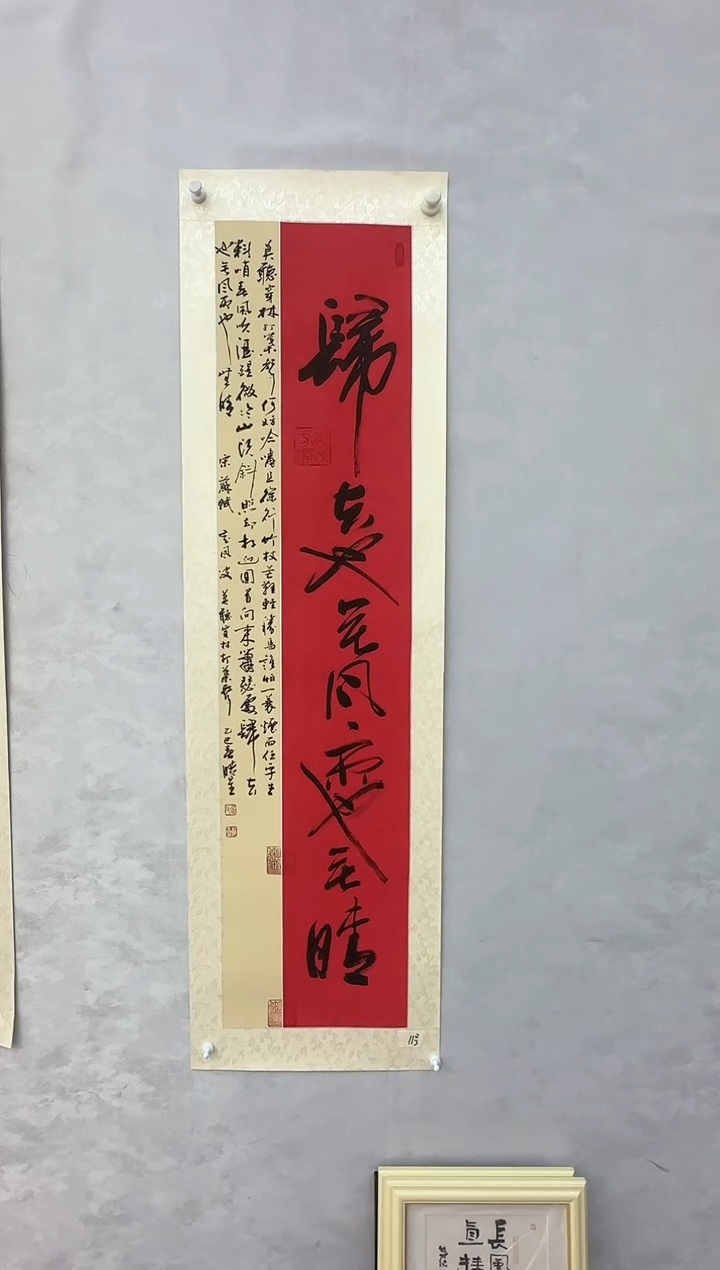 歸去也无風雨也无晴
莫聽穿林打葉聲何妨吟嘯且徐行竹杖芒鞋輕勝馬誰怕一蓑煙雨任平生
料峭春風吹酒醒微冷山頭斜照却相迎回首向來蕭瑟處歸去
也无風雨也無晴 宋 蘇軾 定風波 莫聽穿林打葉聲 乙巳春
113
長風
直挂